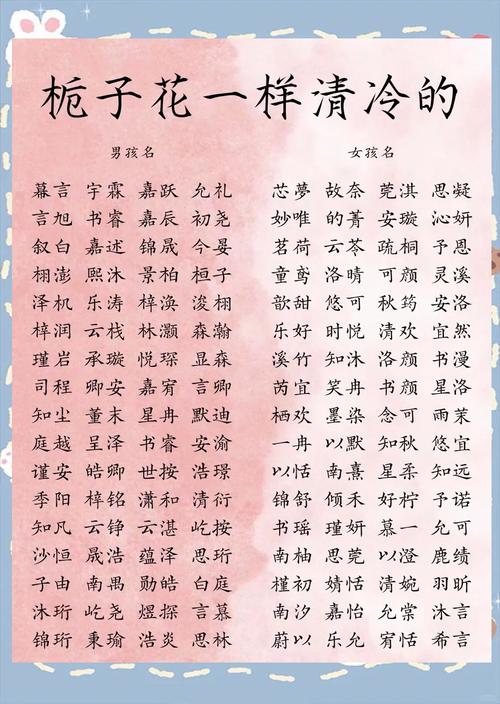 栀子花一样清冷的
男孩名 女孩名
幕言 宇霖 嘉跃 允礼 芯夢 故奈 莞淇 思凝
言旭 书睿 嘉辰 初尧 妙唯 的菁 安璇 沁妍
叙白 嘉述 锦晟 今晏 茗荷 云苓 疏桐 予恩
栩澎 熙沐 景柏 桓子 童鸢 洛晴 可颜 灵溪
泽机 乐涛 梓涣 浚栩 歆甜 悠可 秋筠 安洛
梓润 云栈 林灏 森瀚 乐好 时悦 清欢 宜然
瑾岩 承璇 悦琛 显森 溪竹 知沐 洛颜 书漫
司程 卿安 嘉宥 言卿 芮宜 笑冉 书颜 星洛
知尘 董末 星冉 默迪 栖欢 墨染 念可 雨茉
庭越 呈泽 书睿 安渝 一冉 以默 知秋 悠宜
谨安 皓卿 世按 浩璟 以恬 南熹 星柔 知远
季阳 梓铭 潇和 清衍 锦舒 倾禾 好柠 予诺
知凡 云铮 云湛 屹按 书瑶 瑾妍 慕一 允可
沙恒 晟浩 蕴泽 思珩 南柚 思莞 以澄 鹿绩
子由 南禺 勋皓 白庭 槿初 婧恬 清婉 羽昕
沐珩 屹尧 煜探 言慕 南汐 嘉怡 允棠 沐言
锦珩 秉瑜 浩炎 思林 蔚以 乐允 宥恬 希言